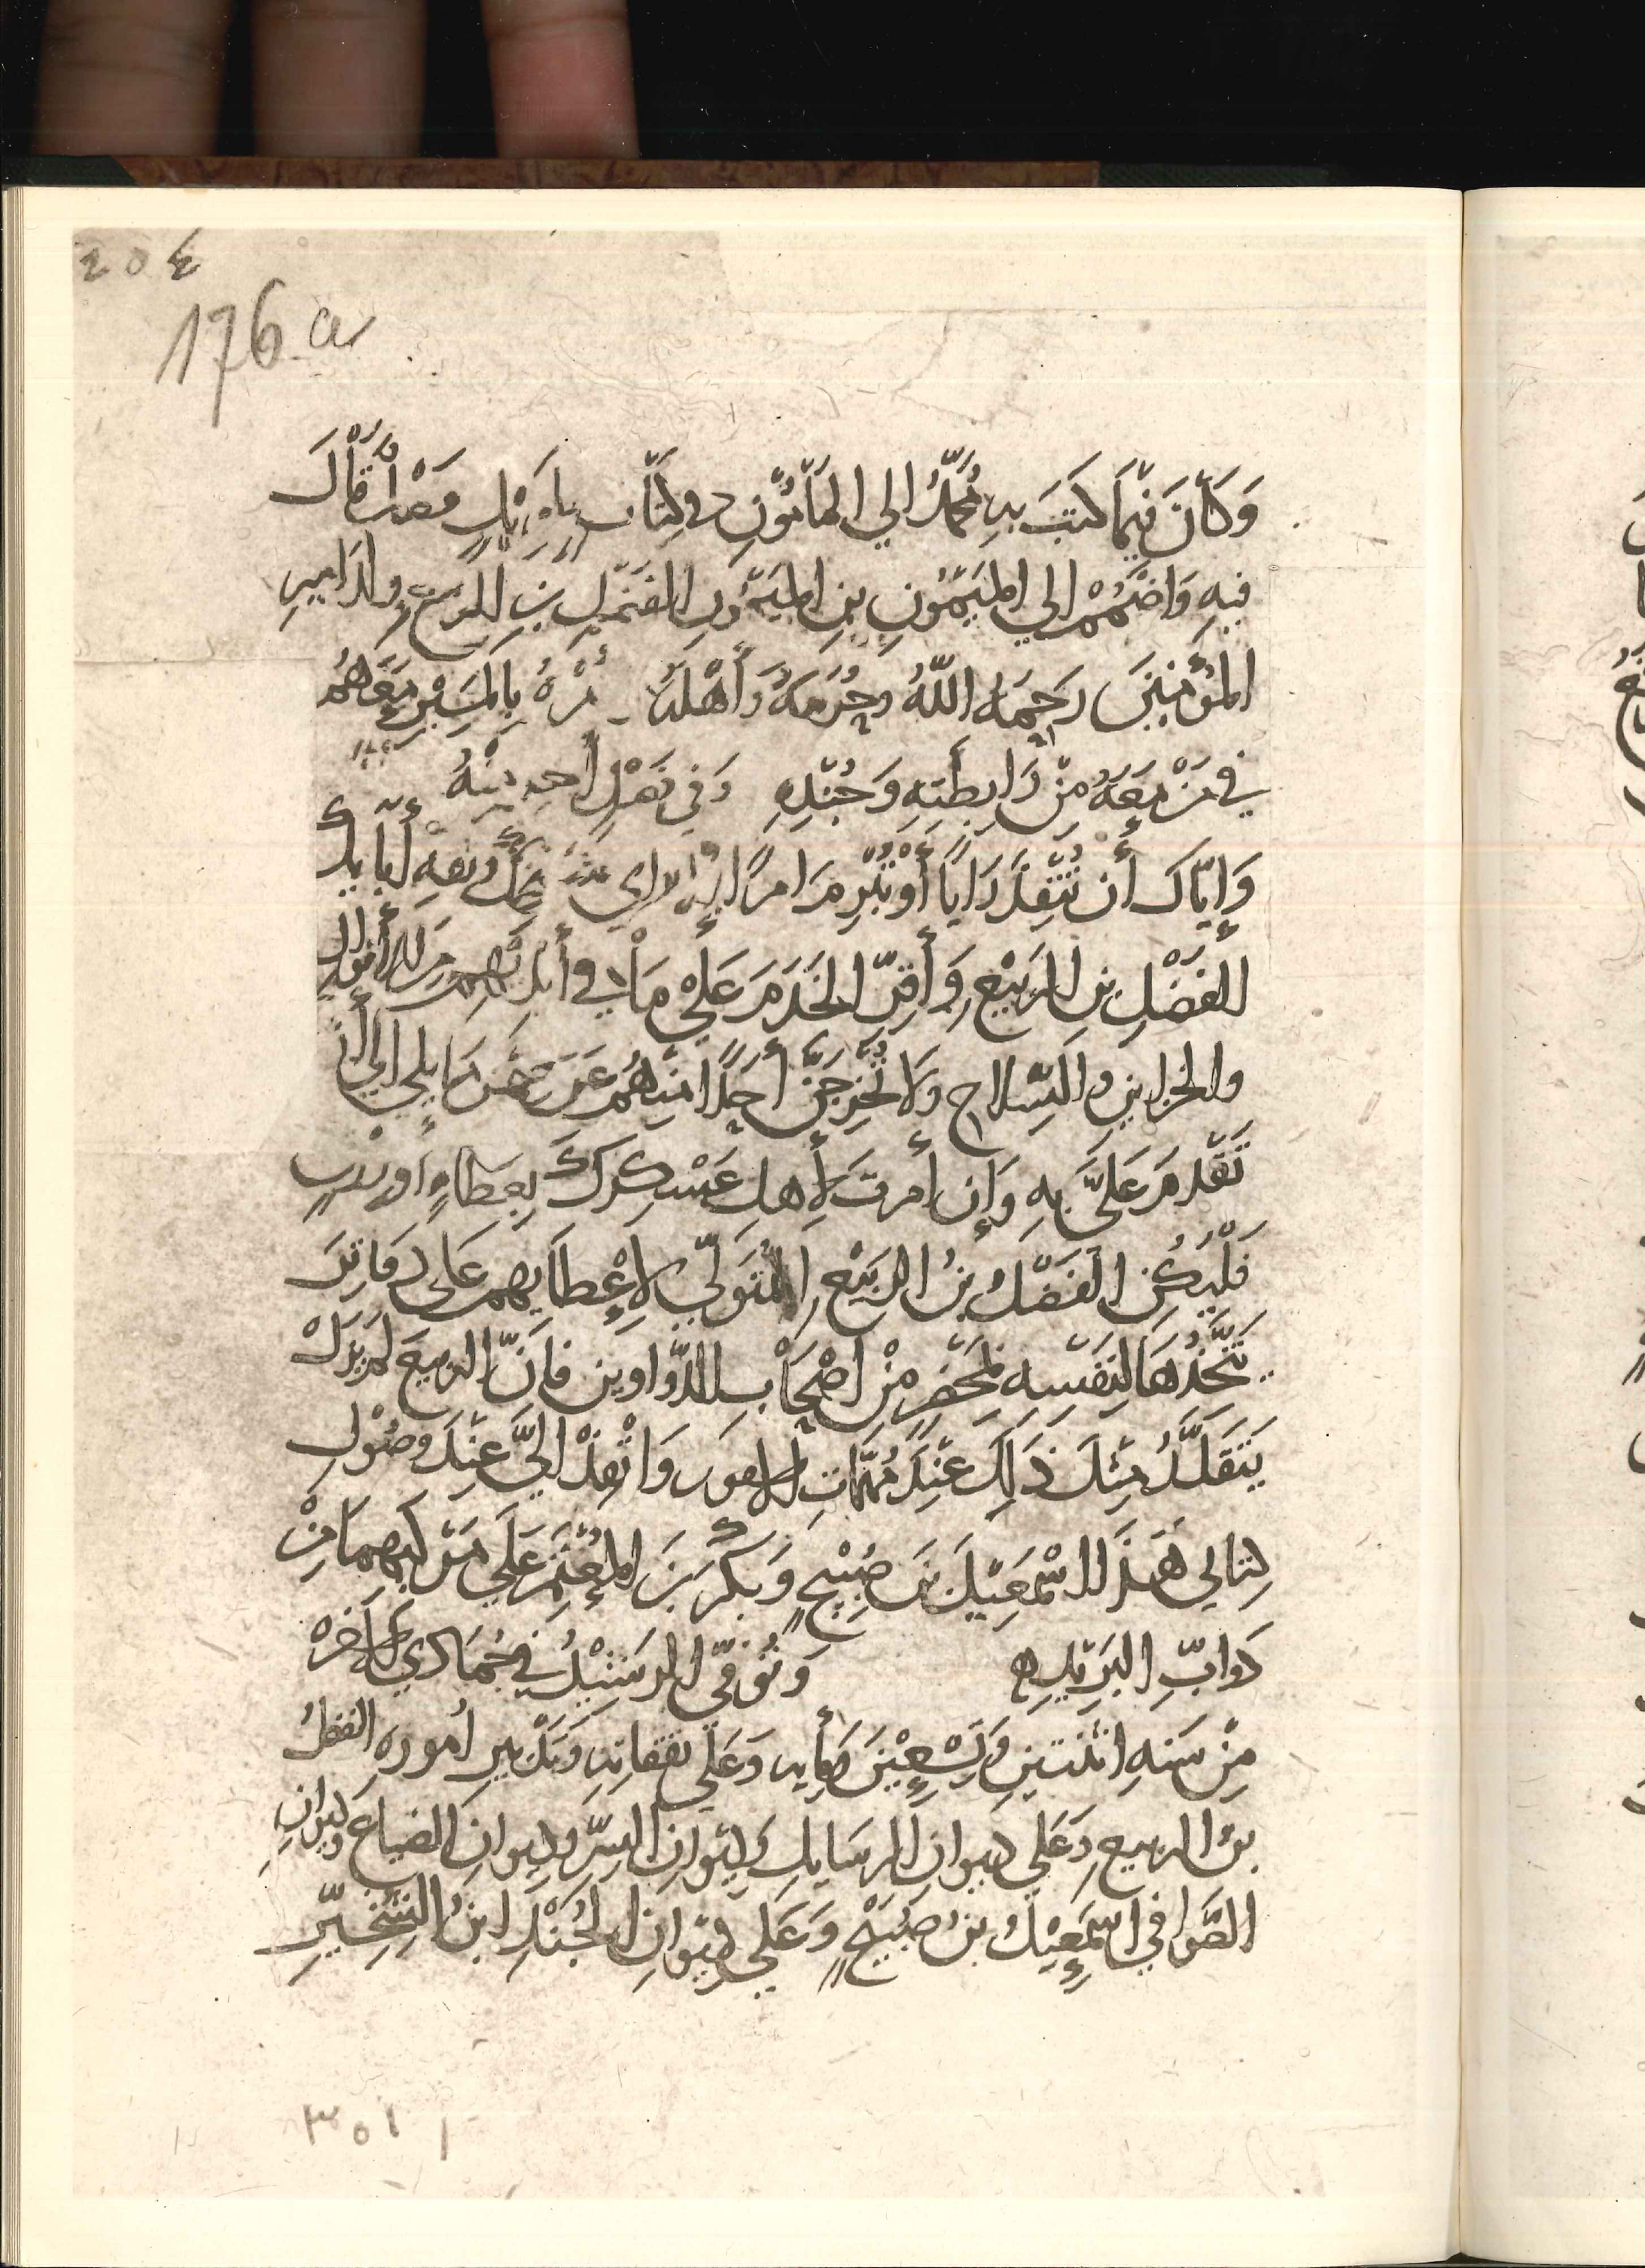 ٢٥٤
176 a
وَكَانَ فِيمَا كَتَبَ بِهِ مُحَمَّدُ الي المَأْمُوْنِ في كِتَابٍ طَوِيْلٍ قَالَ
فِيهِ وَاضْمُمْ الي المَيْمُونِ بنِ المَيْمُونِ الفَضْلِ بنِ الرَّبِيْعِ ولد امِيرِ
المُؤْمِنِينَ رَحِمَهُ اللّٰهُ وحُرَمَهُ وَأَهْلَهُ وَمُرْهُ بِالمَسِيْرِ مَعَهُمْ
فِي مَنْ مَعَهُ مِنْ رَابِطَتِهِ وَجُنْدِهِ
وَإيَّاكَ أن تُنْفِذَ رَايًا أَوْ تُبْرِمَ امرًا إلا براي
الفَضْلِ بنِ الرَبِيْعِ وَأَقِرَّ الخَدَمَ عَلَيْ مَا في أَيْدِيْهِم مِنَ الأَمْوَالِ
والخزاينِ والسِّلاحِ ولا تُخْرِجَنَّ أَحَدًا مِنْهُمْ عَنْ مَا يلي الي أَنْ
تَقْدَمَ عَلَيَّ بِهِ وَإن أَمرتَ لأَهلِ عَسْكَرِكَ بِعَطَاءٍ أو
فَلْيَكُن الفَضْلُ بنُ الرَبِيْعِ المُتَوَلّي لإعْطَايِهِم عَلي دَفَاتِرَ
يَتَّخِذُهَا لِنَفْسِهِ بمَحْضَرٍ مِنْ أَصْحَابِ الدَّوَاوينِ فَإنَّ الربيعَ لم يَزَلْ
يَتَقَلَّدُ مِثْلَ ذَلِكَ عِنْدَ مُهِمَّاتِ الامُورِ وَانْفِذْ اليَّ عِنْدَ وصُوْلِ
كِتابي هَذَا اسْمَعِيْلَ بنَ صُبَيْحٍ وَبَكْرَ بنَ المُعْتَمِرِ عَلَي مَرْكَبِهِمَا مِنْ
دَوابِّ البَرِيْدِ ﻫ وَتُوُفّيَ الرَشِيْدُ في جُمَادَي الآخرَه
مِنْ سَنَهِ اثنتينِ وَتِسْعِيْنَ وَمأيه وَعَلَي نَفَقَاتِهِ وَتَدْبيرِ أُمورِه الفضلُ
بنُ الربيعِ وَعَلَي ديوانِ الرسَايلِ وَدِيْوانِ السِّرِّ وديوانِ الضياعِ وديوانِ
الصَّوافي اسْمَعِيْلُ بنُ صُبَيْحٍ وَعَلَي دِيْوانِ الجُنْدِ ابنُ الشِّخِّيْرِ
٣٥١